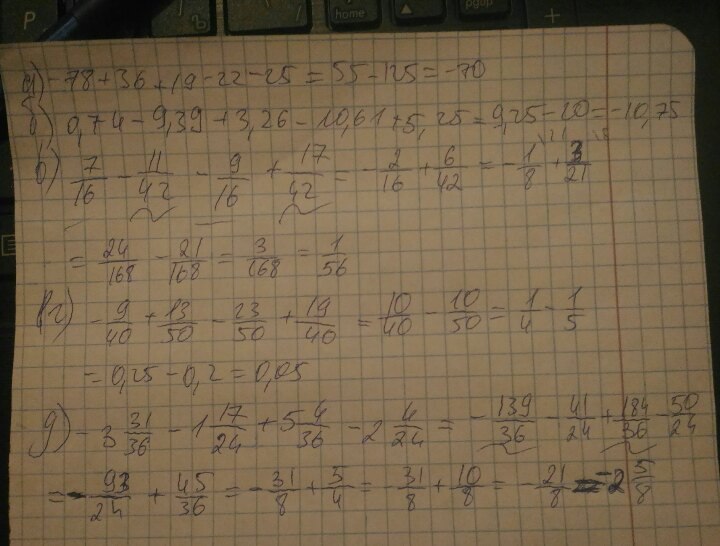 home
pgup
а) -78+36+19-22-25=55-125=-70
б) 0,74-9,39+3,26-10,61+5,25=9,25-20=-10,75
в) 7/16 - 11/42 - 9/16 + 17/42 = -2/16 + 6/42 = -1/8 + 3/21
= 24/168 - 21/168 = 3/168 = 1/56
г) -9/40 + 13/50 - 23/50 + 19/40 = 10/40 - 10/50 = 1/4 - 1/5
= 0,25-0,2=0,05
д) -3 31/36 - 1 17/24 + 5 4/36 - 2 4/24 = -139/36 - 41/24 + 184/36 - 50/24
= -93/24 + 45/36 = -31/8 + 5/4 = -31/8 + 10/8 = -21/8 = -2 5/8